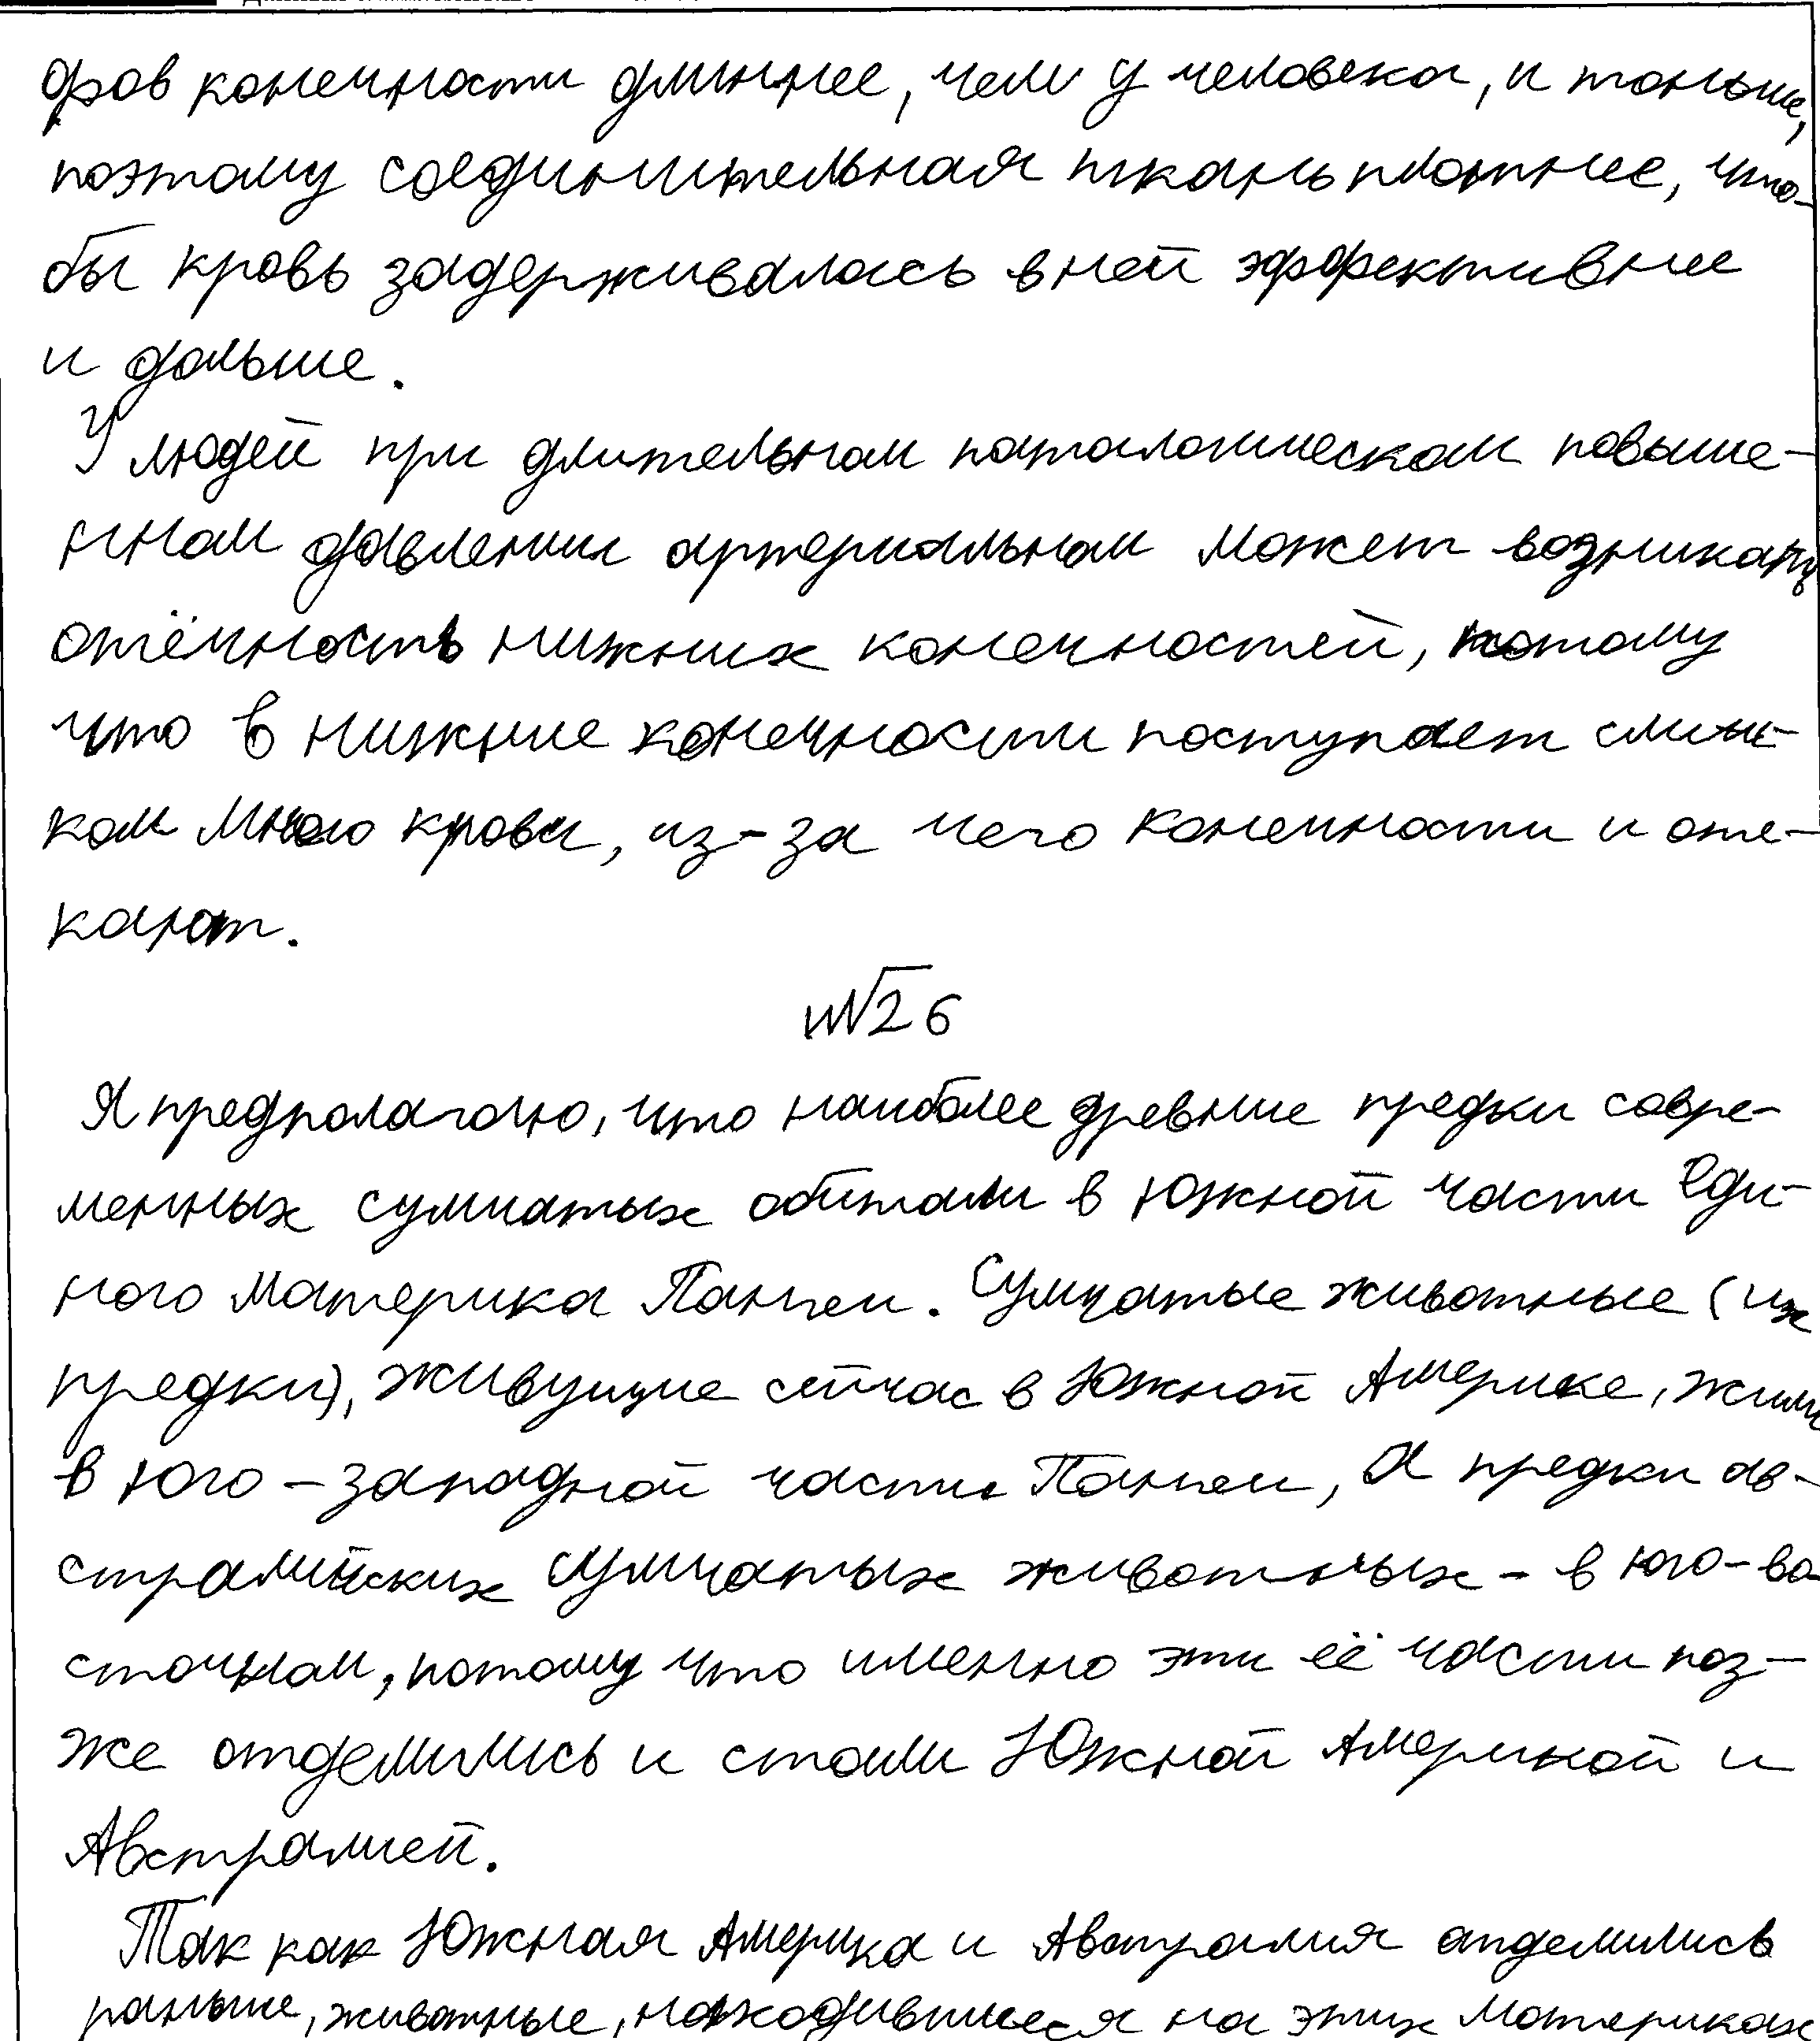 фов конечности длиннее, чем у человека, и тоньше,
поэтому соединительная ткань плотнее, что-
бы кровь задерживалась в ней эффективнее
и дольше.
У людей при длительном патологическом повыше-
нном давлении артериальном может возникать
отёчность нижних конечностей, потому
что в нижние конечности поступает слиш-
ком много крови, из-за чего конечности и оте-
кают.
№26
Я предполагаю, что наиболее древние предки совре-
менных сумчатых обитали в южной части Еди-
ного материка Пангеи. Сумчатые животные (их
предки), живущие сейчас в Южной Америке, жили
в юго-западной части Пангеи, а предки ав-
стралийских сумчатых животных - в юго-во-
сточном, потому что именно эти её части поз-
же отделились и стали Южной Америкой и
Австралией.
Так как Южная Америка и Австралия отделились
раньше, животные, находившиеся на этих материках